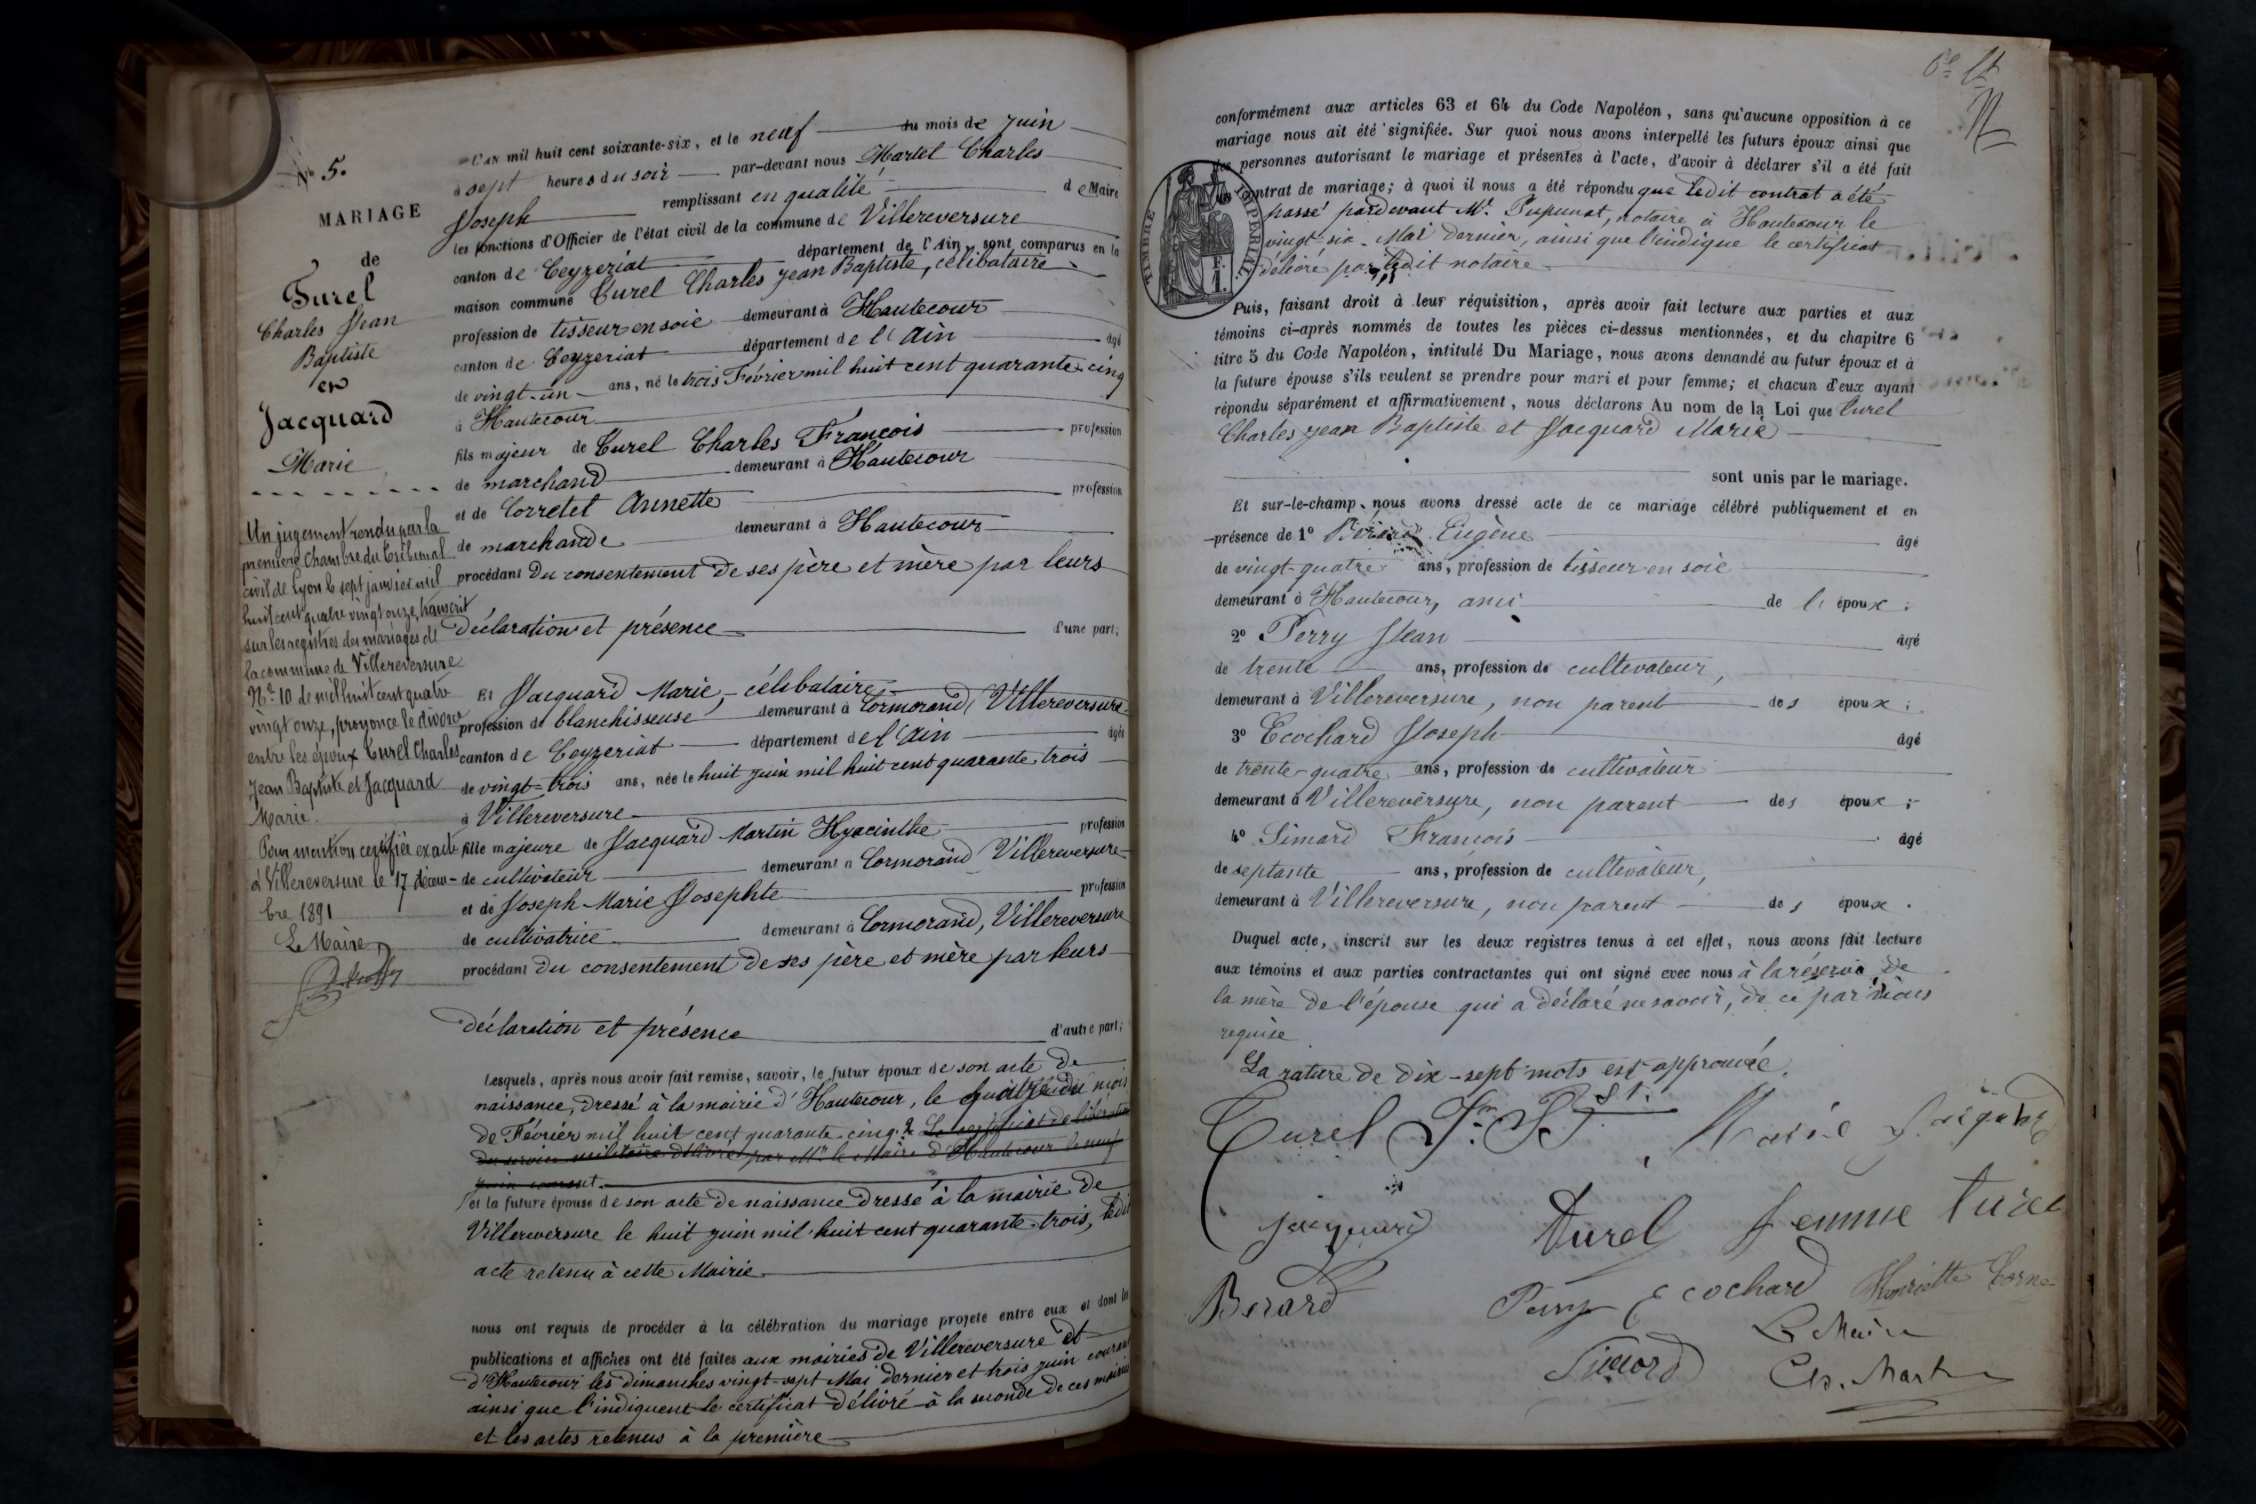 N° 5.
MARIAGE
de
Turel
Charles Jean
Baptiste
et
Jacquard
Marie
Un jugement rendu par la
première Chambre du Tribunal
civil de Lyon le sept janvier mil
huit cent quatre vingt onze, transcrit
sur les registres des mariages de
la commune de Villereversure
N° 10 de mil huit cent quatre
vingt onze, prononce le divorce
entre les époux Turel Charles
Jean Baptiste et Jacquard
Marie.
Pour mention certifiée exacte
à Villereversure le 17 décem-
bre 1891
Le Maire
L'AN mil huit cent soixante-six, et le neuf du mois de Juin
à sept heures du soir par-devant nous Martel Charles
Joseph remplissant en qualité de Maire
les fonctions d'Officier de l'état civil de la commune de Villereversure
canton de Ceyzeriat département de l'Ain, sont comparus en la
maison commune Turel Charles Jean Baptiste, célibataire
profession de tisseur en soie demeurant à Hautecour
canton de Ceyzeriat département de l'Ain âgé
de vingt-un ans, né le trois Février mil huit cent quarante-cinq
à Hautecour
fils majeur de Turel Charles François profession
de marchand demeurant à Hautecour
et de Corretet Annette profession
de marchande demeurant à Hautecour
procédant du consentement de ses père et mère par leurs
déclaration et présence d'une part;
Et Jacquard Marie, célibataire
profession de blanchisseuse demeurant à Cormorand, Villereversure
canton de Ceyzeriat département de l'Ain âgée
de vingt-trois ans, née le huit Juin mil huit cent quarante-trois
à Villereversure
fille majeure de Jacquard Martin Hyacinthe profession
de cultivateur demeurant à Cormorand Villereversure
et de Joseph Marie Josephte profession
de cultivatrice demeurant à Cormorand, Villereversure
procédant du consentement de ses père et mère par leurs
déclaration et présence d'autre part;
Lesquels, après nous avoir fait remise, savoir, le futur époux de son acte de
naissance, dressé à la mairie d'Hautecour, le quatre du mois
de Février mil huit cent quarante-cinq. 2° Le certificat de libération
du service militaire délivré par Mr le Maire d'Hautecour le neuf
juin courant.
et la future épouse de son acte de naissance dressé à la mairie de
Villereversure le huit juin mil huit cent quarante-trois, ledit
acte retenu à cette Mairie
nous ont requis de procéder à la célébration du mariage projeté entre eux et dont les
publications et affiches ont été faites aux mairies de Villereversure et
d'Hautecour les dimanches vingt-sept Mai dernier et trois juin courant
ainsi que l'indiquent le certificat délivré à la seconde de ces mairies
et les actes retenus à la première
conformément aux articles 63 et 64 du Code Napoléon, sans qu'aucune opposition à ce
mariage nous ait été signifiée. Sur quoi nous avons interpellé les futurs époux ainsi que
les personnes autorisant le mariage et présentes à l'acte, d'avoir à déclarer s'il a été fait
contrat de mariage; à quoi il nous a été répondu que ledit contrat a été
passé pardevant Me. Pupunat, notaire à Hautecour le
vingt-six Mai dernier, ainsi que l'indique le certificat
délivré par ledit notaire
TIMBRE IMPERIAL
Puis, faisant droit à leur réquisition, après avoir fait lecture aux parties et aux
témoins ci-après nommés de toutes les pièces ci-dessus mentionnées, et du chapitre 6
titre 5 du Code Napoléon, intitulé Du Mariage, nous avons demandé au futur époux et à
la future épouse s'ils veulent se prendre pour mari et pour femme; et chacun d'eux ayant
répondu séparément et affirmativement, nous déclarons Au nom de la Loi que Turel
Charles Jean Baptiste et Jacquard Marie
sont unis par le mariage.
Et sur-le-champ, nous avons dressé acte de ce mariage célébré publiquement et en
présence de 1° Bérard Eugène âgé
de vingt-quatre ans, profession de tisseur en soie
demeurant à Hautecour, ami de l'époux;
2° Perry Jean âgé
de trente ans, profession de cultivateur,
demeurant à Villereversure, non parent des époux;
3° Ecochard Joseph âgé
de trente-quatre ans, profession de cultivateur
demeurant à Villereversure, non parent des époux;
4° Simard François âgé
de septante ans, profession de cultivateur,
demeurant à Villereversure, non parent des époux.
Duquel acte, inscrit sur les deux registres tenus à cet effet, nous avons fait lecture
aux témoins et aux parties contractantes qui ont signé avec nous à la réserve de
la mère de l'épouse qui a déclaré ne savoir, de ce par nous
requise
La rature de dix-sept mots est approuvée.
Turel Marie Jaquard
Jacquard Turel femme turel
Berard Perry Ecochard Henriette
Simard Le Maire
Ch. Martel